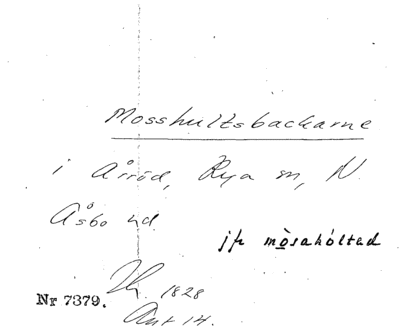 Mosshultsbackarne
i Årröd, Rya sn, N.
Åsbo hd.
jfr mòsahòlted
1828
Nr 7379.
Akt 14.